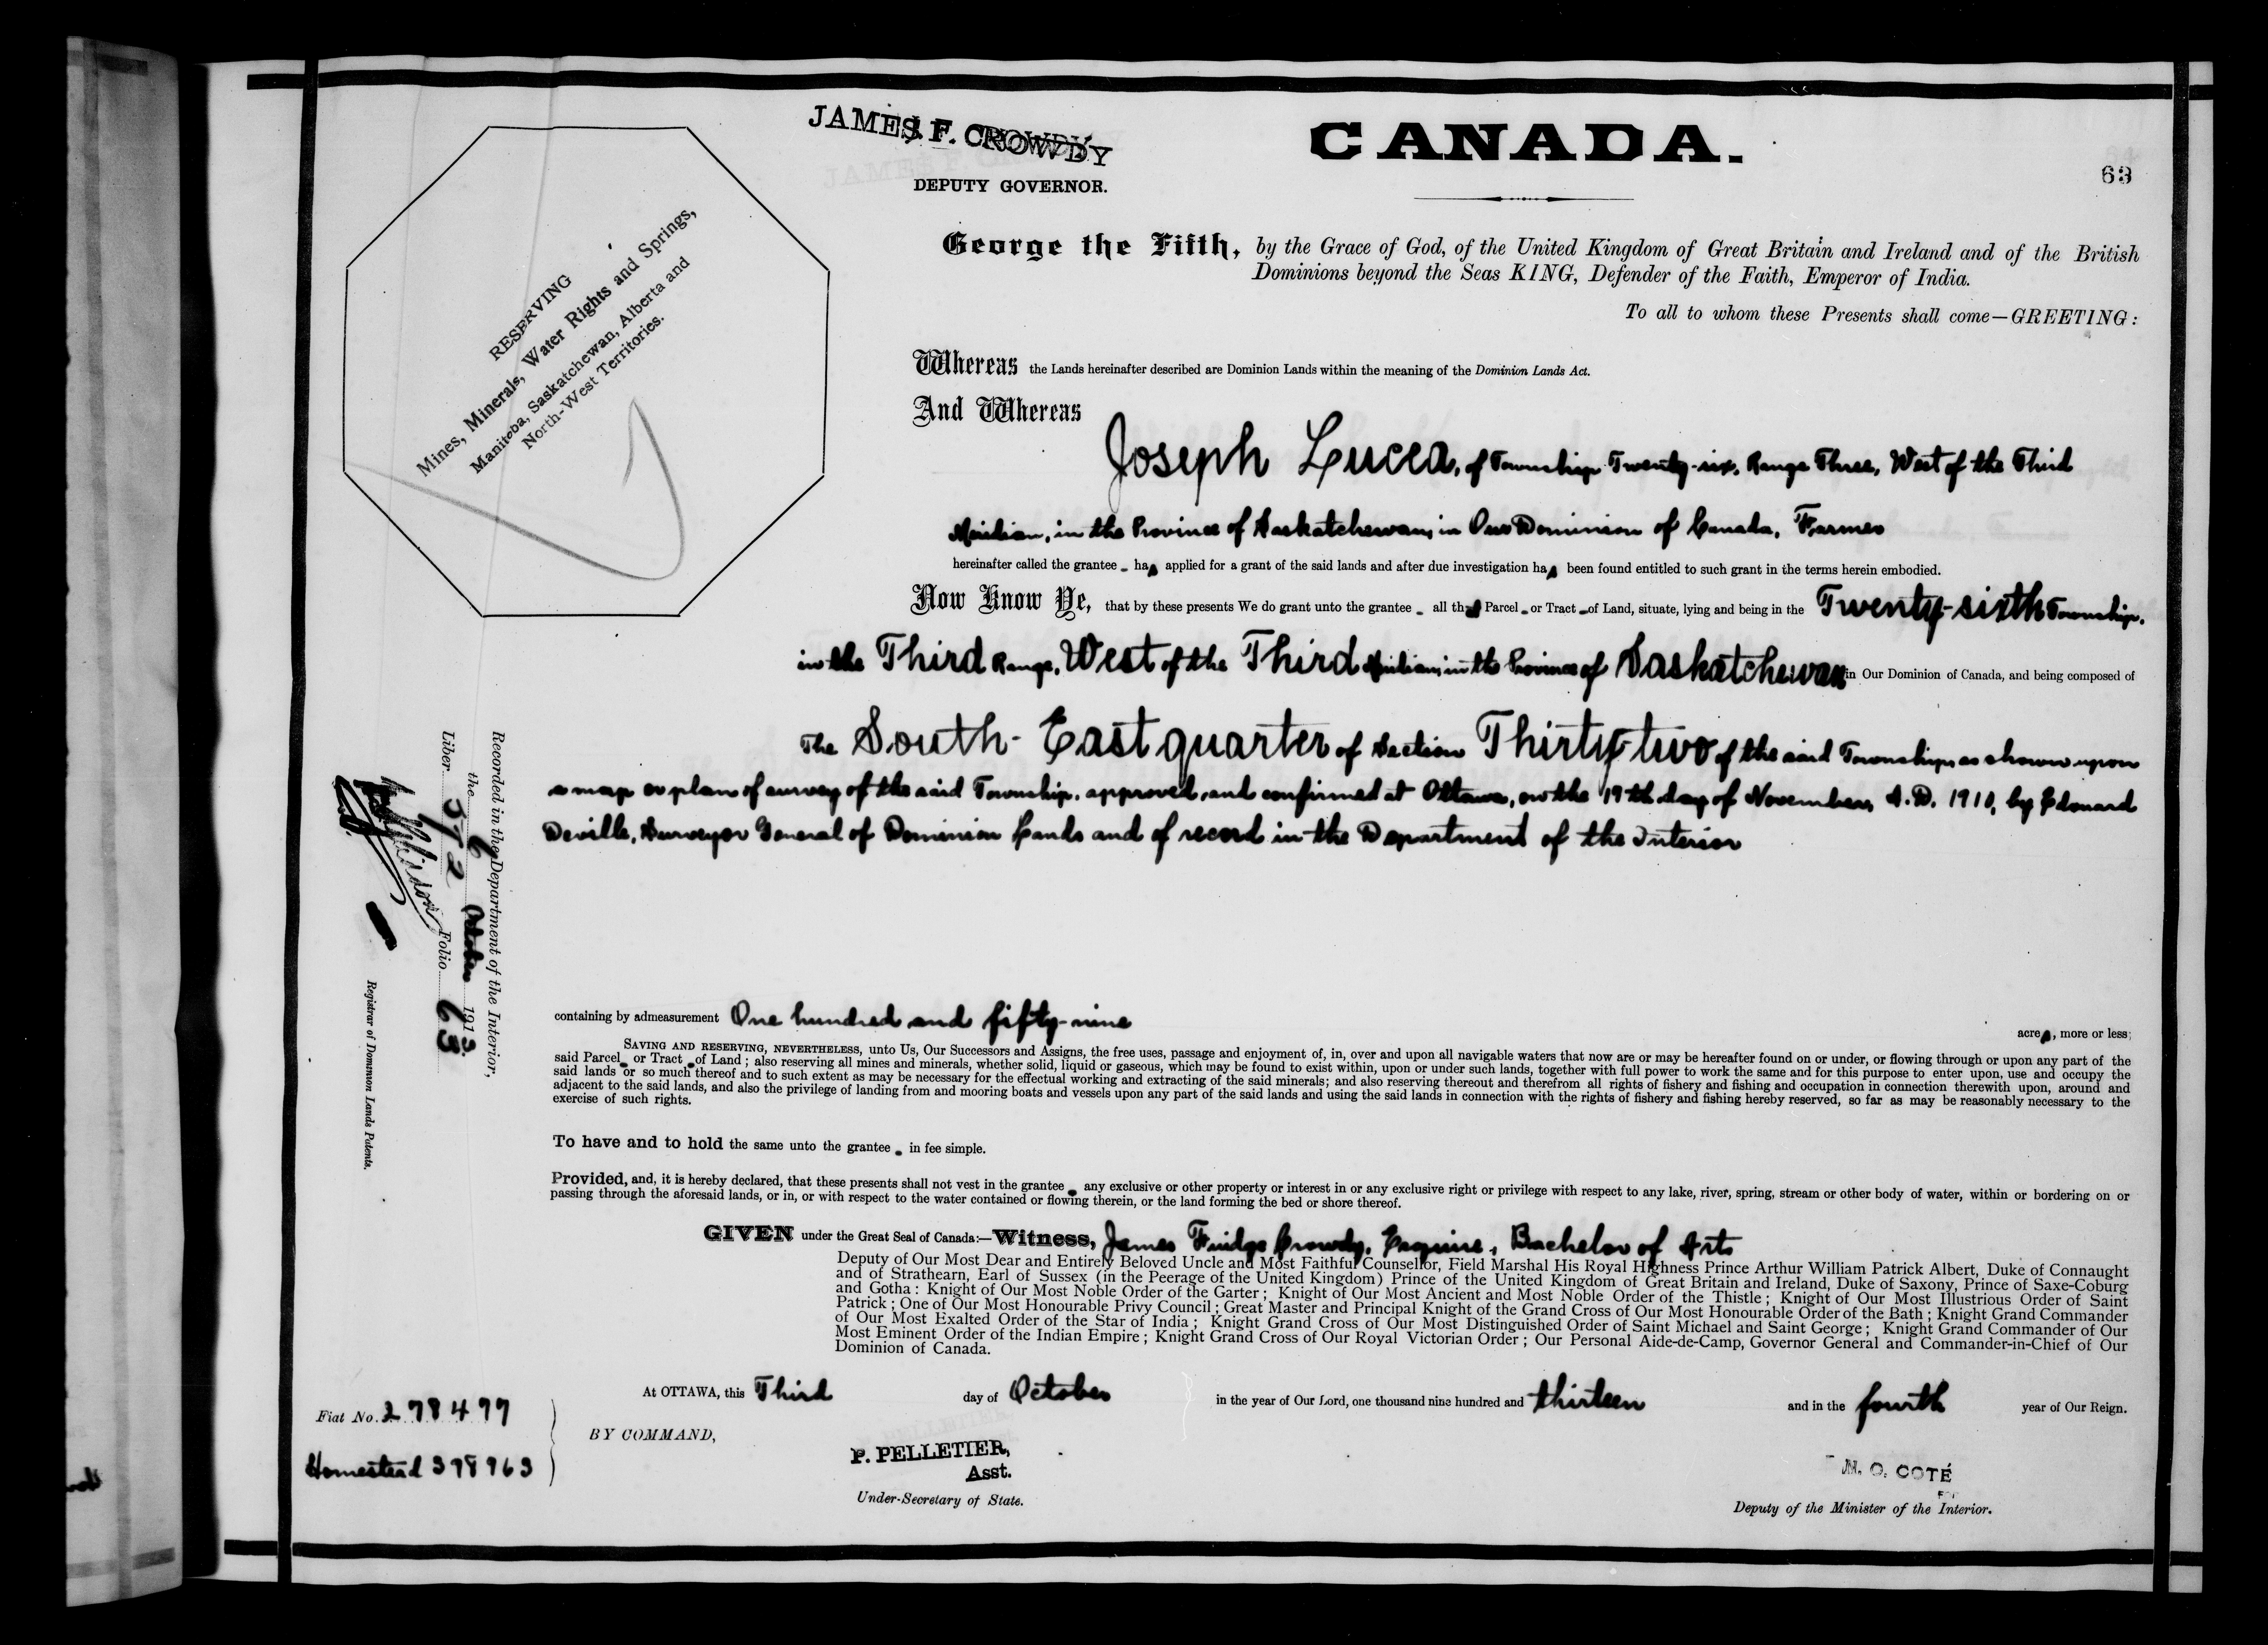 JAMES F. CROWDY
DEPUTY GOVERNOR.
CANADA.
63
RESERVING
Mines, Minerals, Water Rights and Springs,
Manitoba, Saskatchewan, Alberta and
North-West Territories.
George the Fifth, by the Grace of God, of the United Kingdom of Great Britain and Ireland and of the British
Dominions beyond the Seas KING, Defender of the Faith, Emperor of India.
To all to whom these Presents shall come—GREETING:
Whereas the Lands hereinafter described are Dominion Lands within the meaning of the Dominion Lands Act.
And Whereas
Joseph Lucea, of Township Twenty-six, Range Three, West of the Third
Meridian, in the Province of Saskatchewan, in Our Dominion of Canada, Farmer
hereinafter called the grantee has applied for a grant of the said lands and after due investigation has been found entitled to such grant in the terms herein embodied.
Now Know Ye, that by these presents We do grant unto the grantee all that Parcel or Tract of Land, situate, lying and being in the Twenty-sixth Township,
in the Third Range, West of the Third Meridian, in the Province of Saskatchewan in Our Dominion of Canada, and being composed of
The South-East quarter of Section Thirty-two of the said Township, as shown upon
a map or plan of survey of the said Township, approved and confirmed at Ottawa, on the 19th day of November, A.D. 1910, by Edouard
Deville, Surveyor General of Dominion Lands and of record in the Department of the Interior
containing by admeasurement One hundred and fifty-nine
acres, more or less;
SAVING AND RESERVING, NEVERTHELESS, unto Us, Our Successors and Assigns, the free uses, passage and enjoyment of, in, over and upon all navigable waters that now are or may be hereafter found on or under, or flowing through or upon any part of the
said Parcel or Tract of Land; also reserving all mines and minerals, whether solid, liquid or gaseous, which may be found to exist within, upon or under such lands, together with full power to work the same and for this purpose to enter upon, use and occupy the
said lands or so much thereof and to such extent as may be necessary for the effectual working and extracting of the said minerals; and also reserving thereout and therefrom all rights of fishery and fishing and occupation in connection therewith upon, around and
adjacent to the said lands, and also the privilege of landing from and mooring boats and vessels upon any part of the said lands and using the said lands in connection with the rights of fishery and fishing hereby reserved, so far as may be reasonably necessary to the
exercise of such rights.
To have and to hold the same unto the grantee in fee simple.
Provided, and, it is hereby declared, that these presents shall not vest in the grantee any exclusive or other property or interest in or any exclusive right or privilege with respect to any lake, river, spring, stream or other body of water, within or bordering on or
passing through the aforesaid lands, or in, or with respect to the water contained or flowing therein, or the land forming the bed or shore thereof.
GIVEN under the Great Seal of Canada:—Witness, James Fuidge Crowdy, Esquire, Bachelor of Arts
Deputy of Our Most Dear and Entirely Beloved Uncle and Most Faithful Counsellor, Field Marshal His Royal Highness Prince Arthur William Patrick Albert, Duke of Connaught
and of Strathearn, Earl of Sussex (in the Peerage of the United Kingdom) Prince of the United Kingdom of Great Britain and Ireland, Duke of Saxony, Prince of Saxe-Coburg
and Gotha: Knight of Our Most Noble Order of the Garter; Knight of Our Most Ancient and Most Noble Order of the Thistle; Knight of Our Most Illustrious Order of Saint
Patrick; One of Our Most Honourable Privy Council; Great Master and Principal Knight of the Grand Cross of Our Most Honourable Order of the Bath; Knight Grand Commander
of Our Most Exalted Order of the Star of India; Knight Grand Cross of Our Most Distinguished Order of Saint Michael and Saint George; Knight Grand Commander of Our
Most Eminent Order of the Indian Empire; Knight Grand Cross of Our Royal Victorian Order; Our Personal Aide-de-Camp, Governor General and Commander-in-Chief of Our
Dominion of Canada.
At OTTAWA, this Third day of October in the year of Our Lord, one thousand nine hundred and thirteen and in the fourth year of Our Reign.
Fiat No. 278477
Homestead 398963
BY COMMAND,
P. PELLETIER,
Asst.
Under-Secretary of State.
N. O. COTÉ
Deputy of the Minister of the Interior.
Recorded in the Department of the Interior,
the 6 October 1913
Liber 572 Folio 63
Registrar of Dominion Lands Patents.